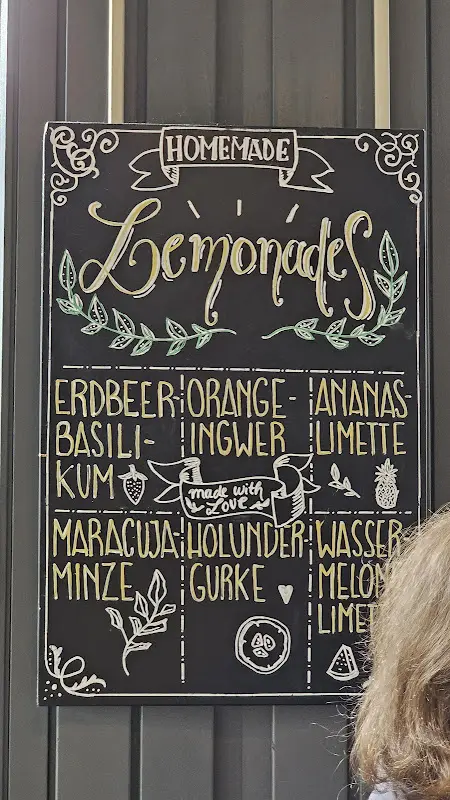 HOMEMADE
Lemonades
ERDBEER-
BASILI-
KUM
ORANGE-
INGWER
ANANAS-
LIMETTE
made with
LOVE
MARACUJA-
MINZE
HOLUNDER-
GURKE
WASSER
MELON
LIMET